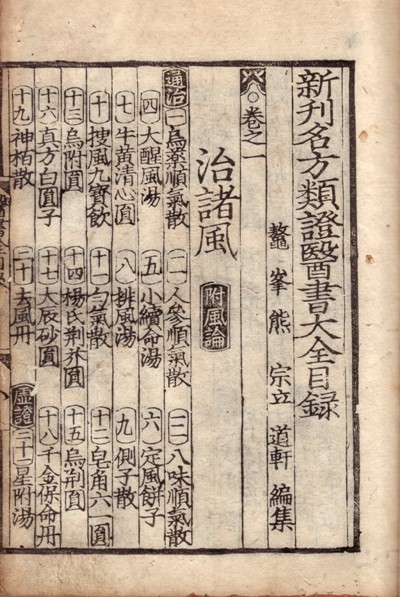 新刊名方類證醫書大全目録
鰲峯熊 宗立 道軒 編集
卷之一
治諸風 附風論
通治 一 烏藥順氣散 二 人參順氣散 三 八味順氣散
四 大醒風湯 五 小續命湯 六 定風餅子
七 牛黃清心圓 八 排風湯 九 側子散
十 搜風九寶飲 十一 勻氣散 十二 皂角六一圓
十三 烏附圓 十四 楊氏荆芥圓 十五 烏荆圓
十六 真方白圓子 十七 大辰砂圓 十八 千金保命丹
十九 神栢散 二十 去風丹 虛證 二十一 星附湯